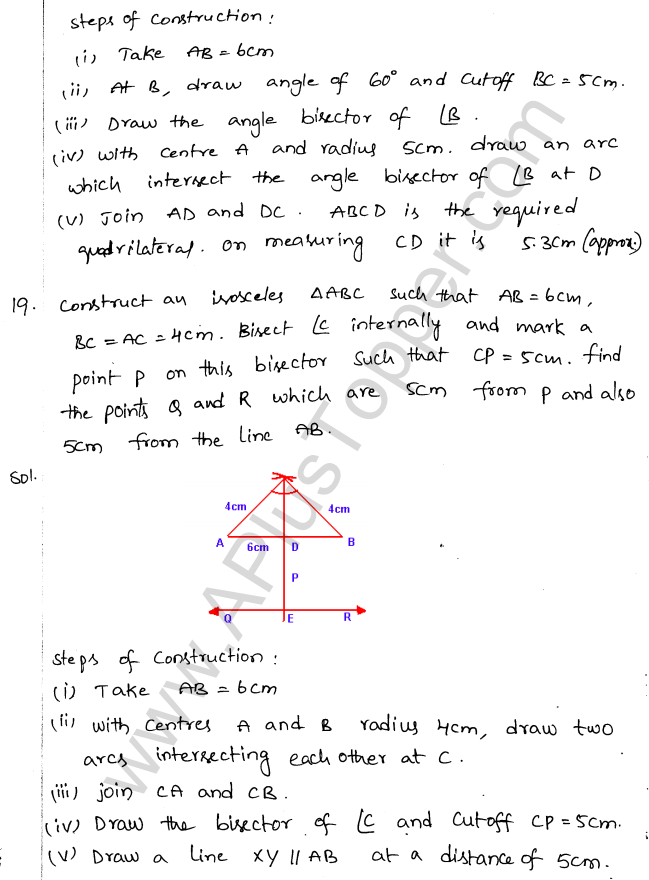 steps of construction :
(i) Take AB = 6cm
(ii) At B, draw angle of 60° and cutoff BC = 5cm.
(iii) Draw the angle bisector of ∠B .
(iv) with centre A and radius 5cm. draw an arc
which intersect the angle bisector of ∠B at D
(v) Join AD and DC . ABCD is the required
quadrilateral. on measuring CD it is 5.3cm (approx.)
19. construct an isosceles ΔABC such that AB = 6cm,
BC = AC = 4cm. Bisect ∠C internally and mark a
point P on this bisector such that CP = 5cm. find
the points Q and R which are 5cm from P and also
5cm from the line AB.
Sol.
4cm 4cm
A 6cm D B
P
Q E R
steps of construction :
(i) Take AB = 6cm
(ii) with centres A and B radius 4cm, draw two
arcs intersecting each other at C.
(iii) join CA and CB .
(iv) Draw the bisector of ∠C and cutoff CP = 5cm.
(v) Draw a line XY || AB at a distance of 5cm.
www.APlusTopper.com